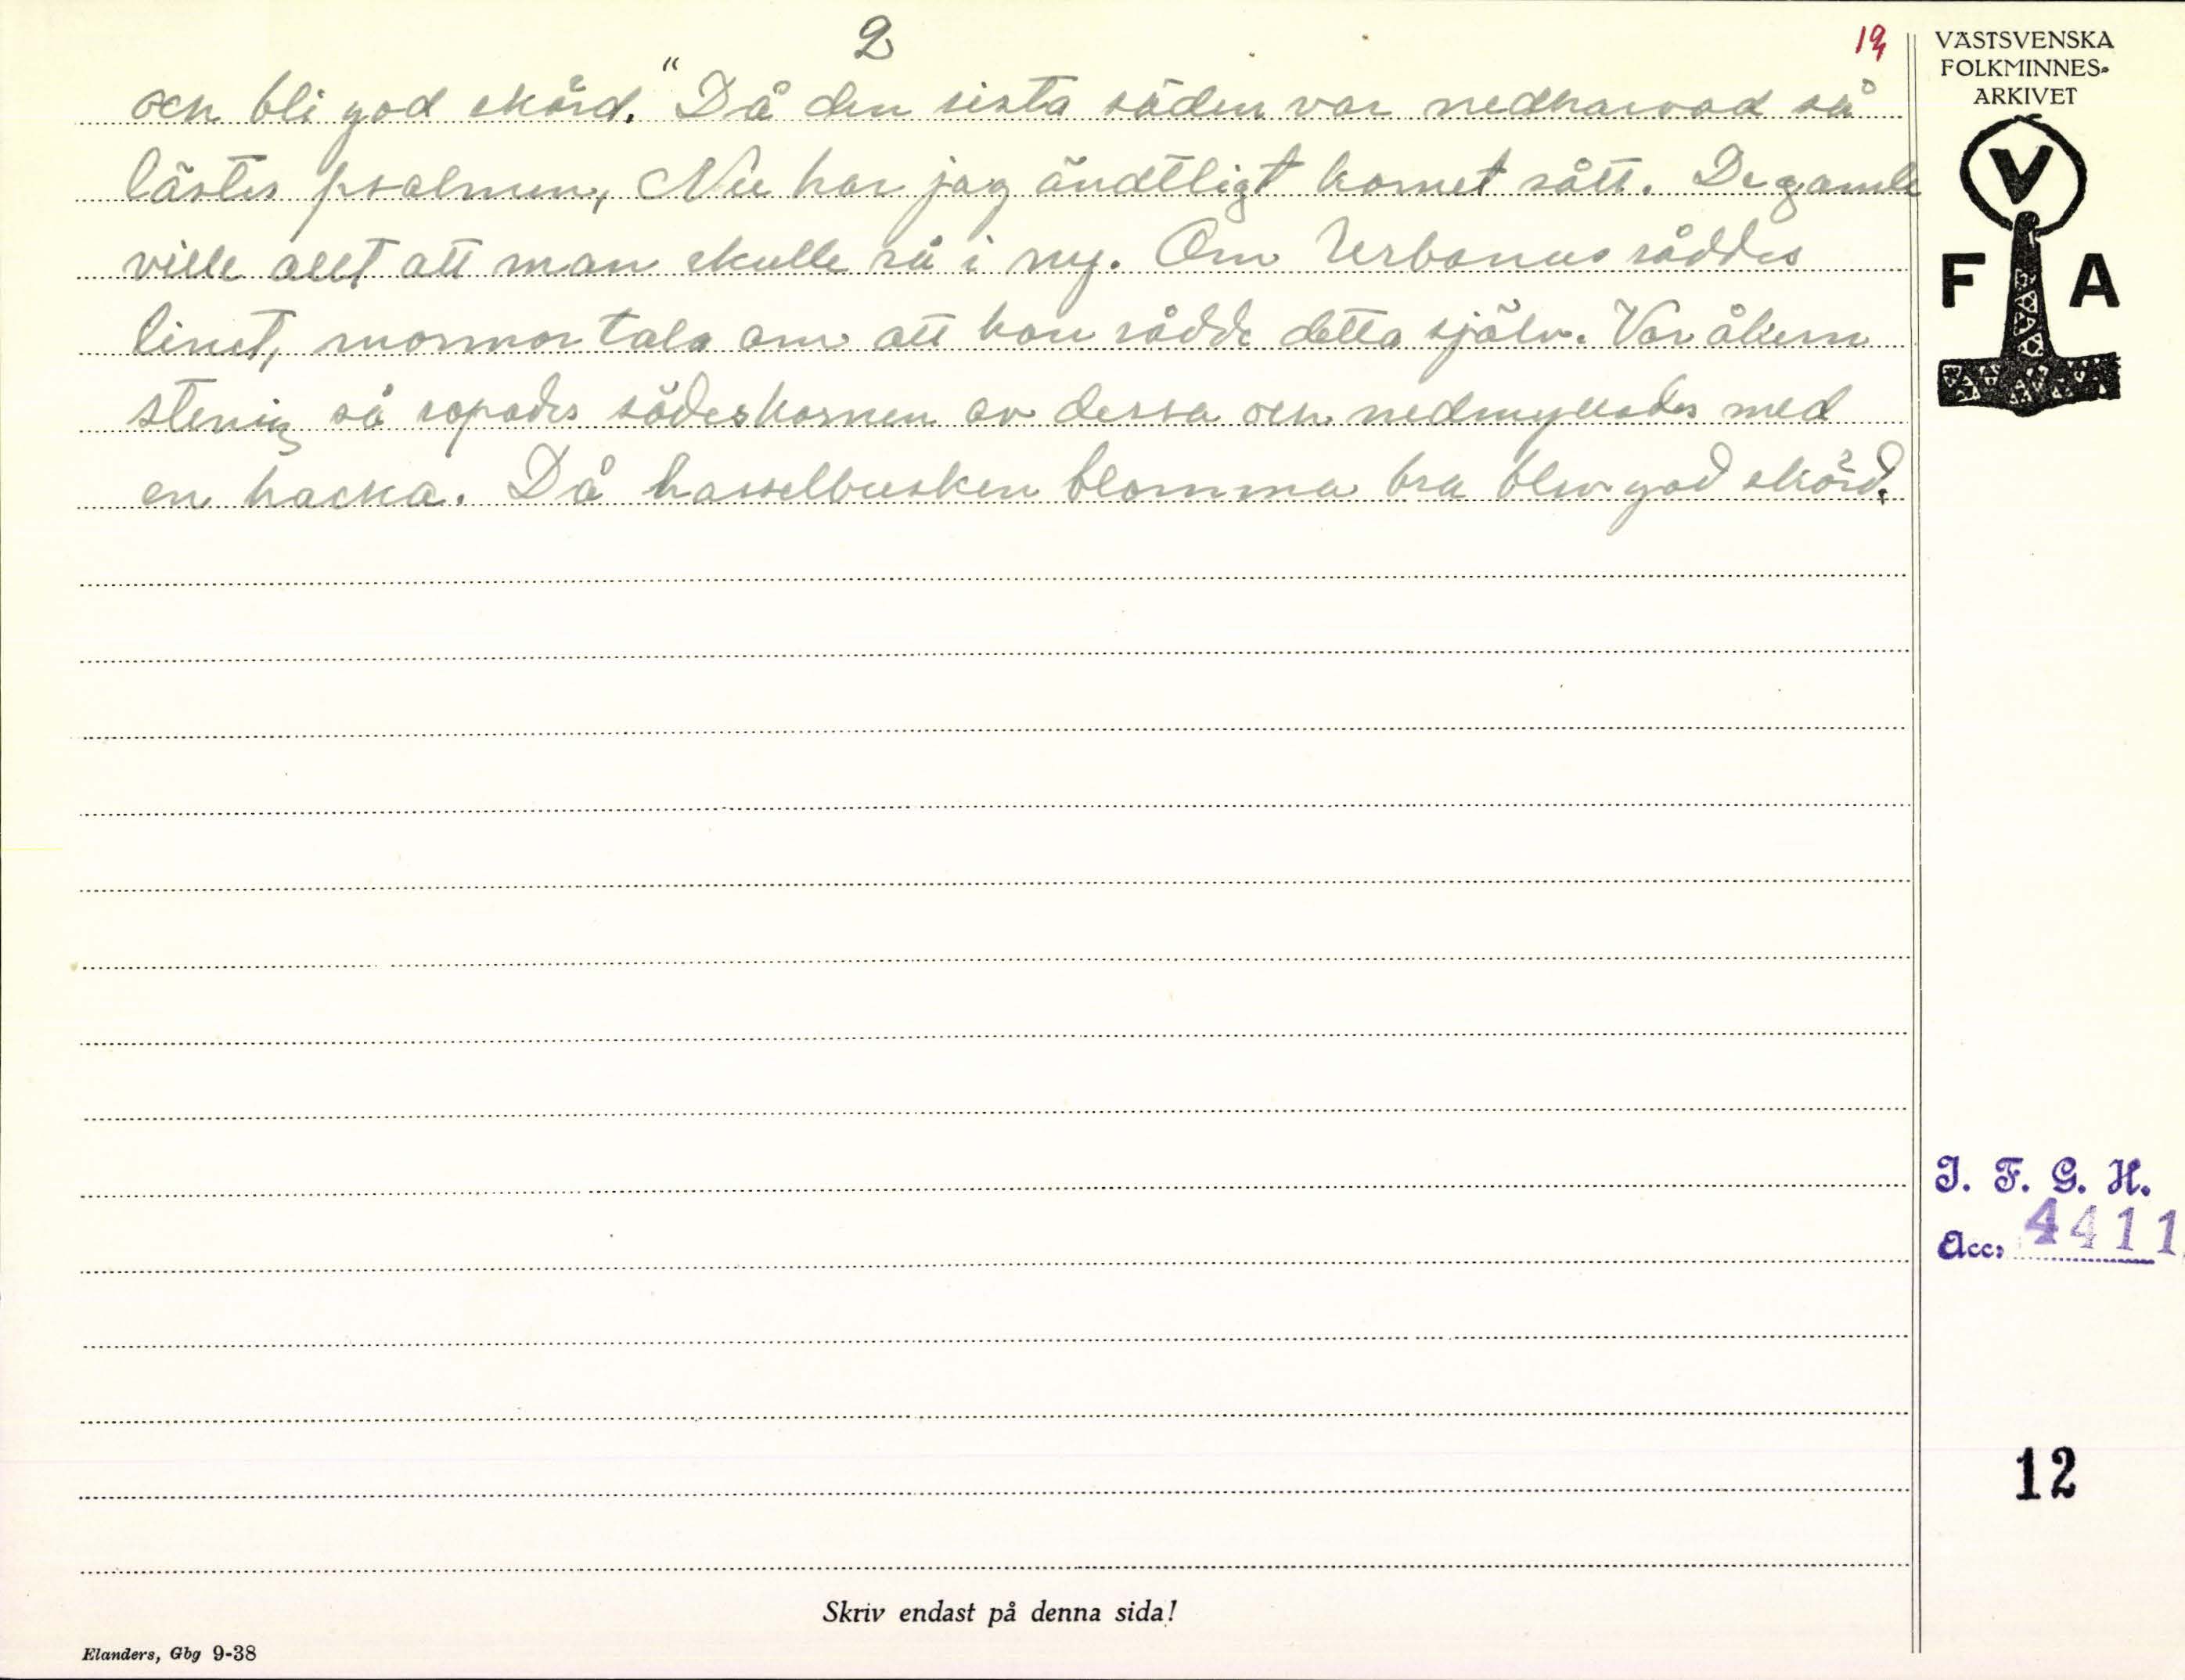 2
12
och bli god skörd." Då den sista säden var nedharvad så
lästes psalmen, Nu har jag ändtligt kornet sått. De gamle
ville allt att man skulle så i ny. Om Urbanus såddes
linet, mormor tala om att hon sådde detta själv. Var åkern
stenig så sopades sädeskornen av dessa och nedmyllades med
en hacka. Då hasselbusken blomma bra blev god skörd.
VÄSTSVENSKA
FOLKMINNES-
ARKIVET
V
F A
I. F. G. H.
Acc. 4411
12
Skriv endast på denna sida!
Elanders, Gbg 9-38